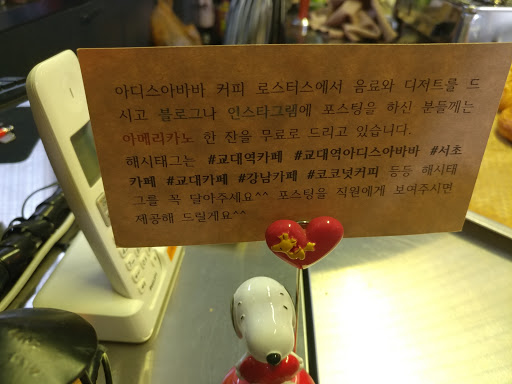 아디스아바바 커피 로스터스에서 음료와 디저트를 드
시고 블로그나 인스타그램에 포스팅을 하신 분들께는
아메리카노 한 잔을 무료로 드리고 있습니다.
해시태그는 #교대역카페 #교대역아디스아바바 #서초
카페 #교대카페 #강남카페 #코코넛커피 등등 해시태
그를 꼭 달아주세요^^ 포스팅을 직원에게 보여주시면
제공해 드릴게요^^